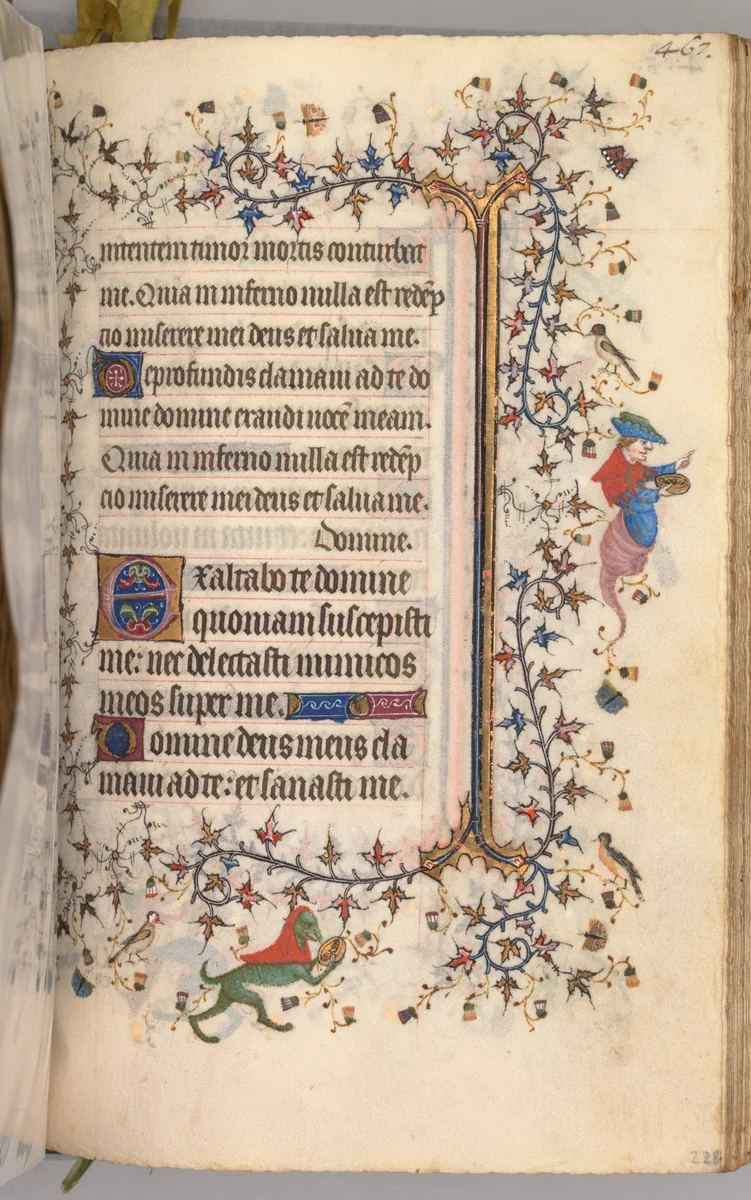 467.
intentem timor mortis conturbat
me. Quia in inferno nulla est redēp
cio miserere mei deus et salua me.
De profundis clamaui ad te do
mine domine exaudi uocē meam.
Quia in inferno nulla est redēp
cio miserere mei deus et salua me.
Domine.
Exaltabo te domine
quoniam suscepisti
me: nec delectasti inimicos
meos super me.
Domine deus meus cla
maui ad te: et sanasti me.
228